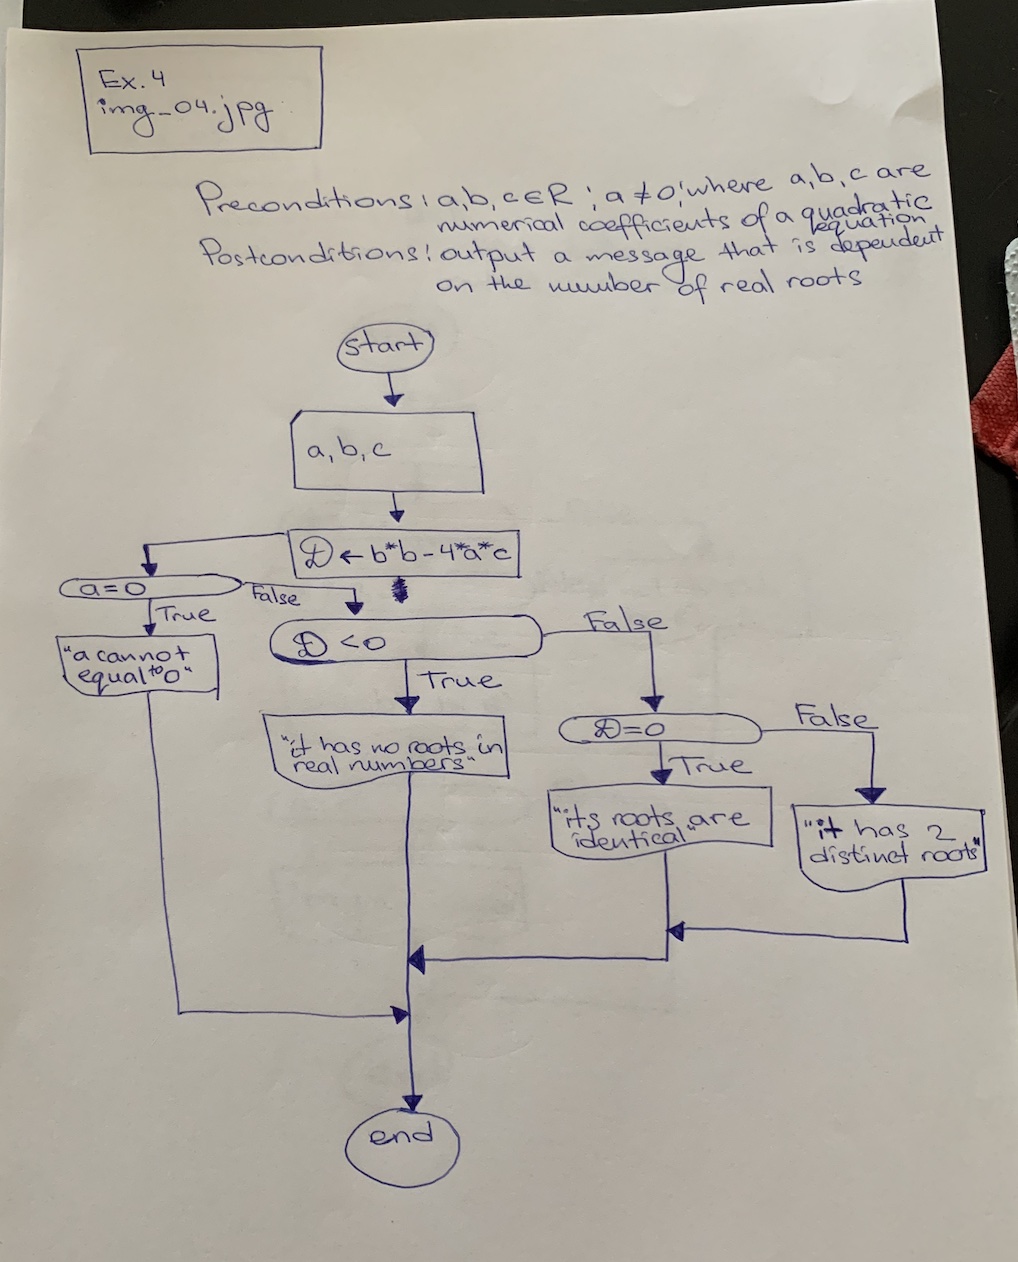 Ex. 4
img_04.jpg
Preconditions: a, b, c ∈ R ; a ≠ 0; where a, b, c are
numerical coefficients of a quadratic
equation
Postconditions: output a message that is dependent
on the number of real roots
start
a, b, c
D ← b*b - 4*a*c
a = 0
False
True
"a cannot
equal to 0"
D < 0
False
True
"it has no roots in
real numbers"
D = 0
False
True
"its roots are
identical"
"it has 2
distinct roots"
end